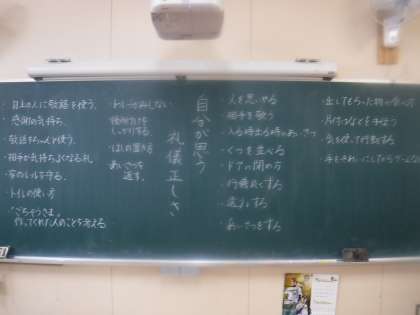 自分が思う
礼儀正しさ
・目上の人に敬語を使う。
・感謝の気持ち。
・敬語をちゃんと使う。
・相手が気持ちよくなる礼
・家のルールを守る。
・トイレの使い方
・「ごちそうさま」
作ってくれた人のことを考える
しっかりする
・はしの置き方
・あいさつを
返す。
・人を思いやる
・相手を敬う
・入る時出る時のあいさつ
・くつを並べる
・ドアの閉め方
・行儀よくする
・あいさつをする
・出してもらった物
・片付けなどを手伝う
・気を使って行動する